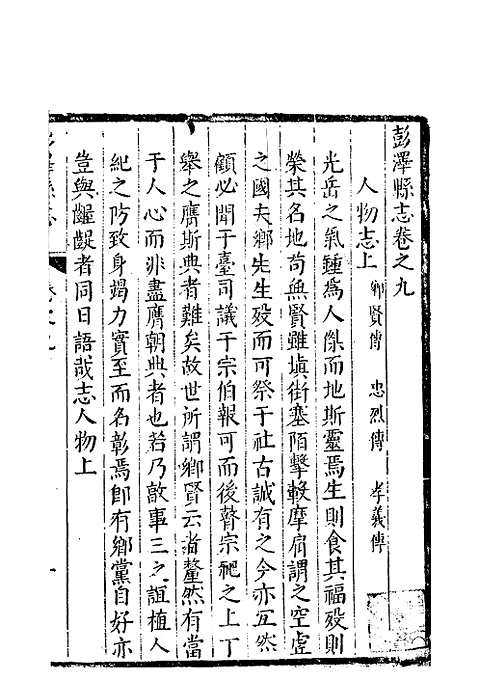 彭澤縣志卷之九
人物志上 鄉賢傳 忠烈傳 孝義傳
光岳之氣鍾為人傑而地斯靈焉生則食其福歿則
榮其名地苟無賢雖塡街塞陌擊轂摩肩謂之空虛
之國夫鄉先生歿而可祭于社古誠有之今亦宜然
顧必聞于臺司議于宗伯報可而後瞽宗祀之上丁
舉之膺斯典者難矣故世所謂鄉賢云者釐然有當
于人心而非盡膺朝典者也若乃敦事三之誼植人
紀之防致身竭力實至而名彰焉卽有鄉黨自好亦
豈與齷齪者同日語哉志人物上